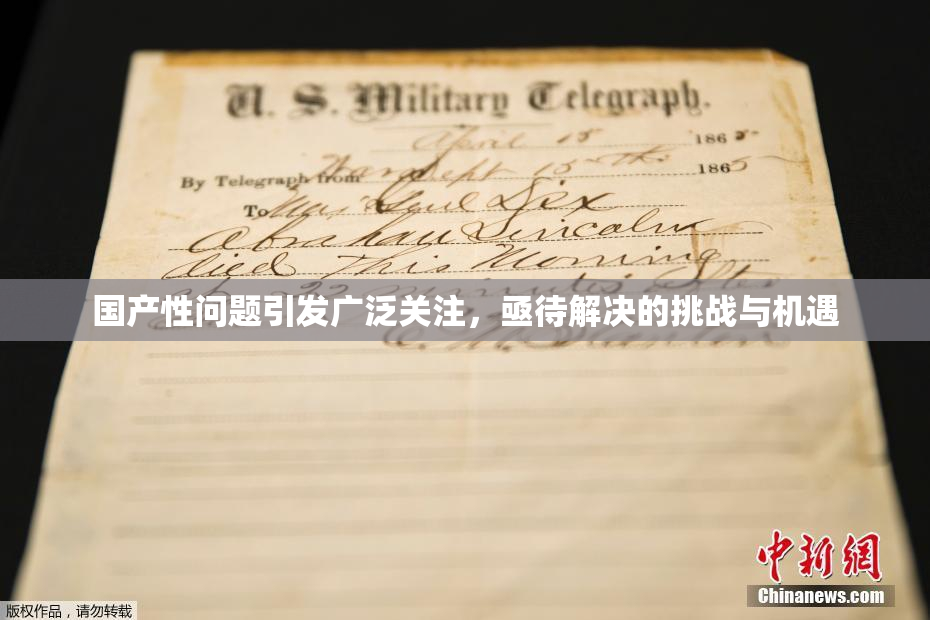 U. S. Military Telegraph.
April 15 1865
By Telegraph from War Dept 15th 1865
To Maj Genl Dix
Abraham Lincoln
died This Morning
at 22 minutes after
国产性问题引发广泛关注，亟待解决的挑战与机遇
E. M. Stanton
中新网
Chinanews.com
版权作品，请勿转载